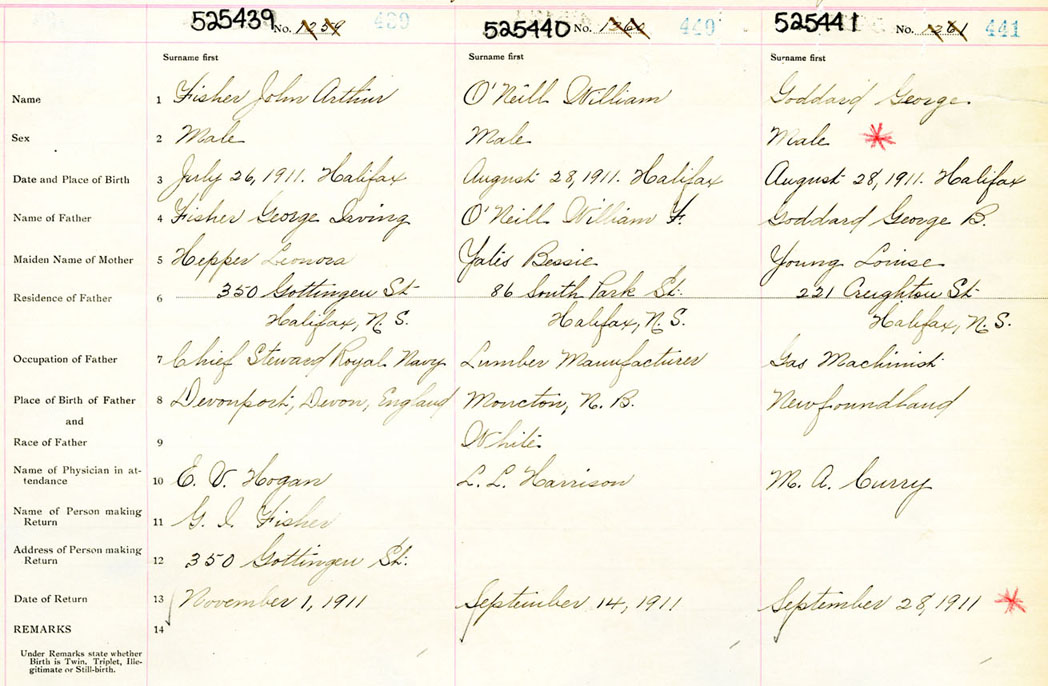 525439 No. 1259 439 525440 No. 1260 440 525441 No. 1261 441
Surname first Surname first Surname first
Name 1 Fisher John Arthur O'Neill William Goddard George
Sex 2 Male Male Male
Date and Place of Birth 3 July 26, 1911. Halifax August 28, 1911. Halifax August 28, 1911. Halifax
Name of Father 4 Fisher George Irving O'Neill William F. Goddard George B.
Maiden Name of Mother 5 Hepper Leonora Yates Bessie Young Louise
Residence of Father 6 350 Gottingen St. 86 South Park St. 221 Creighton St.
Halifax, N.S. Halifax, N.S. Halifax, N.S.
Occupation of Father 7 Chief Steward Royal Navy Lumber Manufacturer Gas Machinist
Place of Birth of Father 8 Devonport, Devon, England Moncton, N.B. Newfoundland
and
Race of Father 9 White
Name of Physician in at-
tendance 10 E. V. Hogan L. L. Harrison M. A. Curry
Name of Person making
Return 11 G. I. Fisher
Address of Person making
Return 12 350 Gottingen St.
Date of Return 13 November 1, 1911 September 14, 1911 September 28, 1911
REMARKS 14
Under Remarks state whether
Birth is Twin, Triplet, Ille-
gitimate or Still-birth.